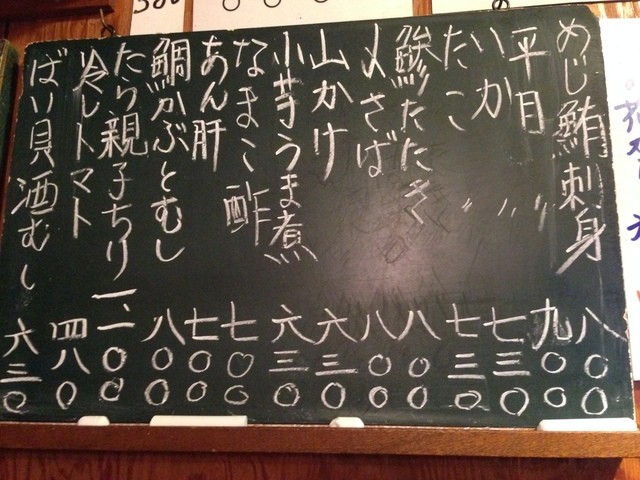 めじ鮪刺身 八〇〇
平目 〃 九〇〇
いか 〃 七三〇
たこ 〃 七三〇
鯵たたき 八〇〇
〆さば 八〇〇
山かけ 六三〇
小芋うま煮 六三〇
なまこ酢 七〇〇
あん肝 七〇〇
鯛かぶとむし 八〇〇
たら親子ちり 一、二〇〇
冷しトマト 四八〇
ばい貝酒むし 六三〇